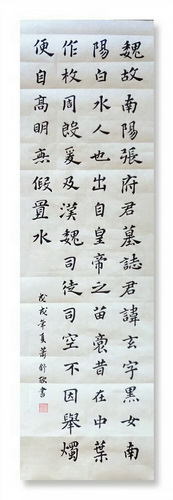 魏故南陽張府君墓誌君諱玄字黑女南
陽白水人也出自皇帝之苗裔昔在中葉
作牧周殷爰及漢魏司徒司空不因舉燭
便自高明無假置水
戊戌年夏書